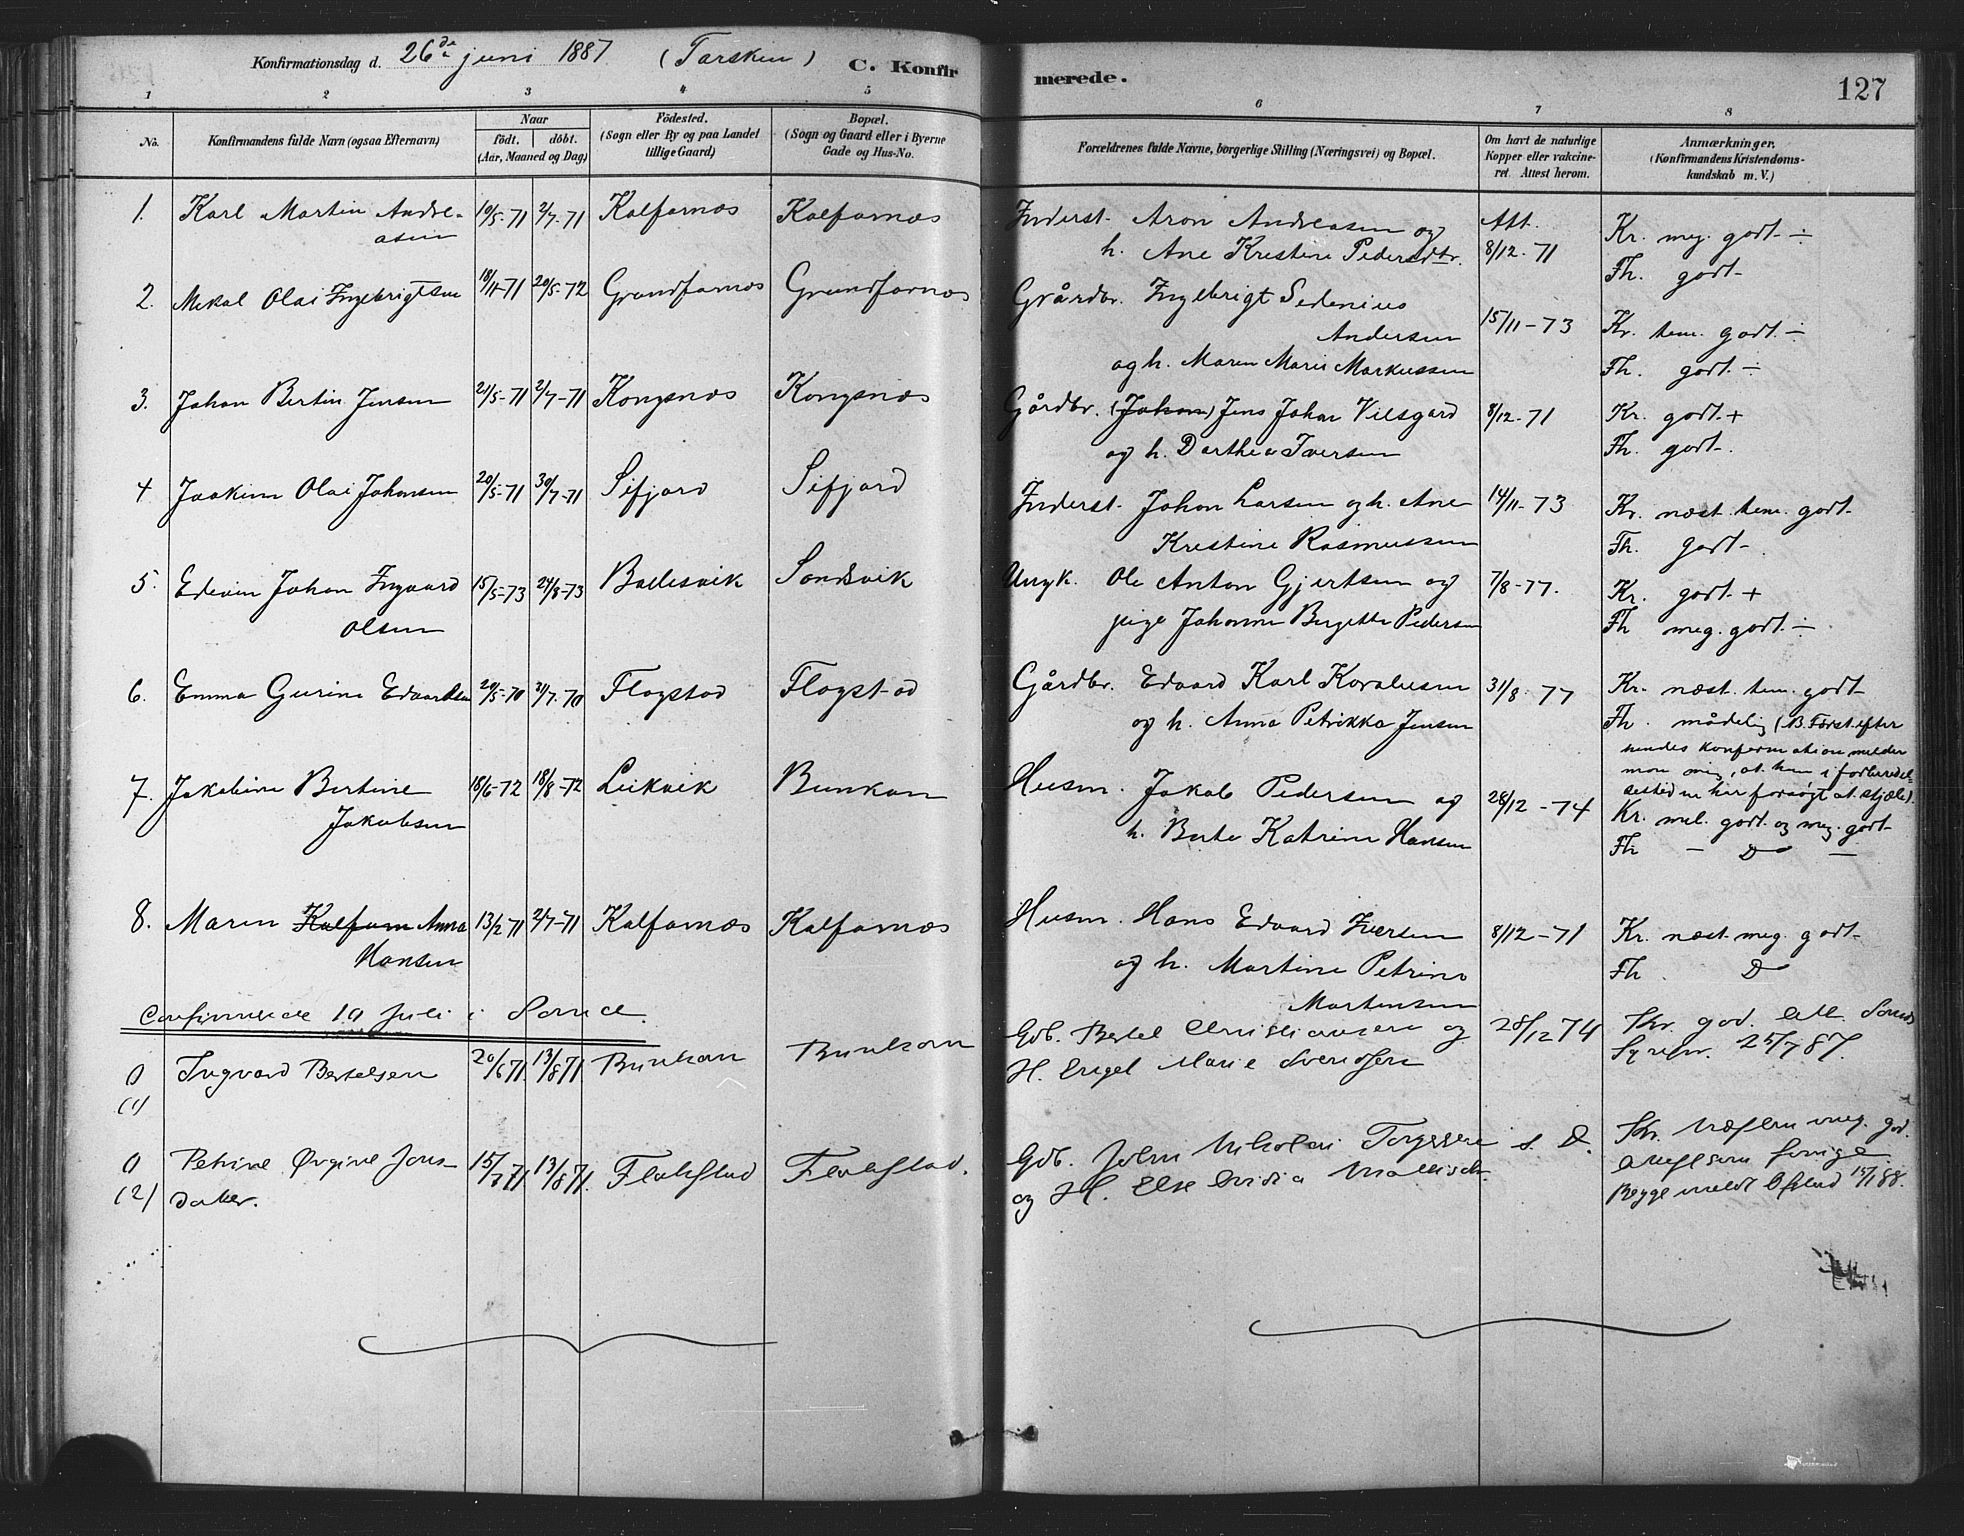 Konfirmationsdag d. 26de juni 1887 (Torsken) C. Konfirmerede. 127
1 2 3 4 5 6 7 8
No. Konfirmandens fulde Navn (ogsaa Efternavn) Naar födt. döbt. (Aar, Maaned og Dag) Födested. (Sogn eller By og paa Landet tillige Gaard) Bopæl. (Sogn og Gaard eller i Byerne Gade og Hus-No. Forældrenes fulde Navne, borgerlige Stilling (Næringsvei) og Bopæl. Om havt de naturlige Kopper eller vakcineret. Attest herom. Anmærkninger. (Konfirmandens Kristendomskundskab m. V.)
1. Karl Martin Andre- 10/5-71 2/7-71 Kalfarnæs Kalfarnæs Inderst. Aron Andreasen og Att. Kr. meg. godt ÷
asen h. Ane Kristine Pedersdtr. 8/12-71 Fh. godt-
2. Mekal Olai Ingebrigtsen 18/11-71 20/5-72 Grundfarnes Grundfarnes Gårdbr. Ingebrigt Sedenius
Andersen 15/11-73 Kr. tem. godt. ÷
og h. Maren Marie Markussen Fh. godt ÷
3. Johan Bertin Jensen 21/5-71 2/7-71 Kongsnæs Kongsnæs Gårdbr. (Johan) Jens Johan Vilsgard 8/12-71 Kr. godt. +
og h. Dorthea Iversen Fh. godt-.
4 Joakim Olai Johansen 20/5-71 30/7-71 Sifjord Sifjord Inderst. Johan Larsen og h. Ane 14/11-73 Kr. næst. tem. godt-
Kristine Rasmussen Fh. godt-
5. Edevin Johan Ingvard 15/5-73 24/8-73 Ballesvik Sandsvik Ungk. Ole Anton Gjertsen og 7/8-77. Kr. godt. +
Olsen pige Johanna Birgitte Pedersen Fh meg. godt. ÷
6. Emma Gurine Edvardsen 20/5-70 21/7-70 Flagstad Flagstad Gårdbr. Edvard Karl Koraliusen 31/8-77 Kr. næst. tem. godt
og h. Anna Petrikka Jensen Fh. mådelig (B. Først efter
hendes konfirmation melder
man mig, at hun i forberedel-
sestiden har forsøgt at stjæle).
7. Jakobine Bertine 18/6-72 18/8-72 Leikvik Bunkan Husm. Jakob Pedersen og 28/12-74 Kr. mel. godt og meg. godt
Jakobsen h. Berte Katrine Hansen Fh - D -
8. Maren Kalfarn Anna 13/2 71 2/7-71 Kalfarnæs Kalfarnæs Husm. Hans Edvard Iversen 8/12-71 Kr. næst. meg. godt-
Hansen og h. Martine Petrine Fh. D
Martensen
Confirmerede 10 Juli i
0 Ingvard Bertelsen 20/6 71. 13/8 71 Bunkan Bunkan Gdb. Bertel Christiansen og 28/12 74 Kr. god. Att.
(1) H. Engel Marie 25/7 87.
0 Petrine Øvgine Jons- 15/7 71 13/8 71. Flakstad Flakstad. Gdb. John Nikolai Torgersen s. D. Kr. Næsten meg. god.
(2) datter. og H. Else
15/1 88.